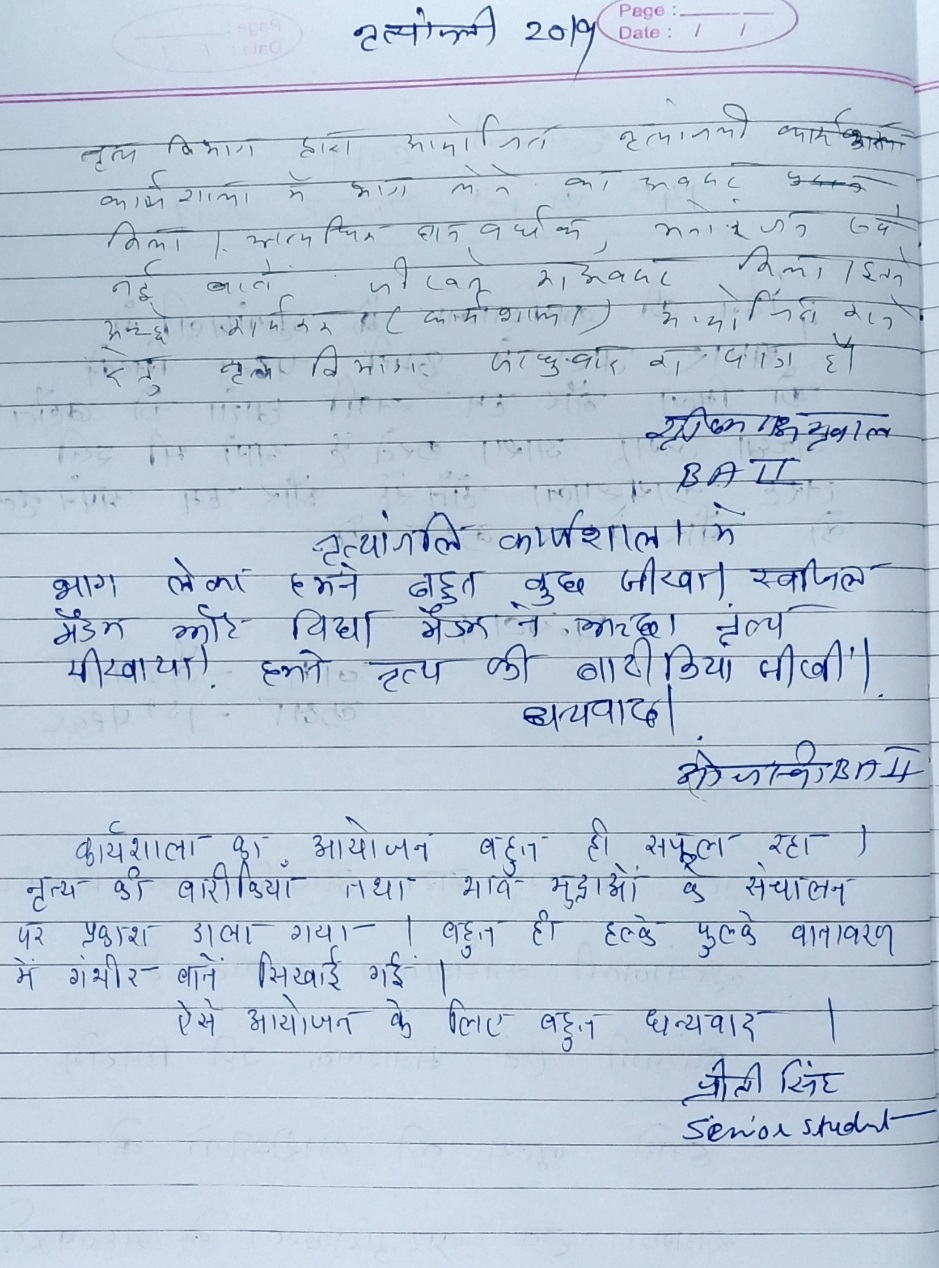 नृत्यांजली 2019
Page :
Date : / /
नृत्य विभाग द्वारा आयोजित नृत्यांजली
कार्यशाला में भाग लेने का अवसर
मिला । अत्यधिक ज्ञान वर्धक, मनोरंजन एवं
नई बातें सीखने का अवसर मिला । इतने
अच्छे कार्यक्रम (कार्यशाला) आयोजित करने
हेतु नृत्य विभाग साधुवाद का पात्र है।
BA II
नृत्यांजलि कार्यशाला में
भाग लेकर हमने बहुत कुछ सीखा। स्वप्निल
मैडम और विधा मैडम ने अच्छा नृत्य
सीखाया। हमने नृत्य की बारीकियां सीखीं।
धन्यवाद।
BA II
कार्यशाला का आयोजन बहुत ही सफल रहा ।
नृत्य की बारीकियाँ तथा भाव मुद्राओं के संचालन
पर प्रकाश डाला गया । बहुत ही हल्के फुलके वातावरण
में गंभीर बातें सिखाई गईं ।
ऐसे आयोजन के लिए बहुत धन्यवाद ।
प्रीती सिंह
Senior student